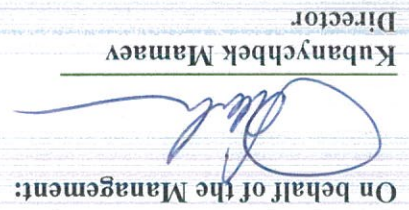 On behalf of the Management:
Kubanychbek Mamaev
Director